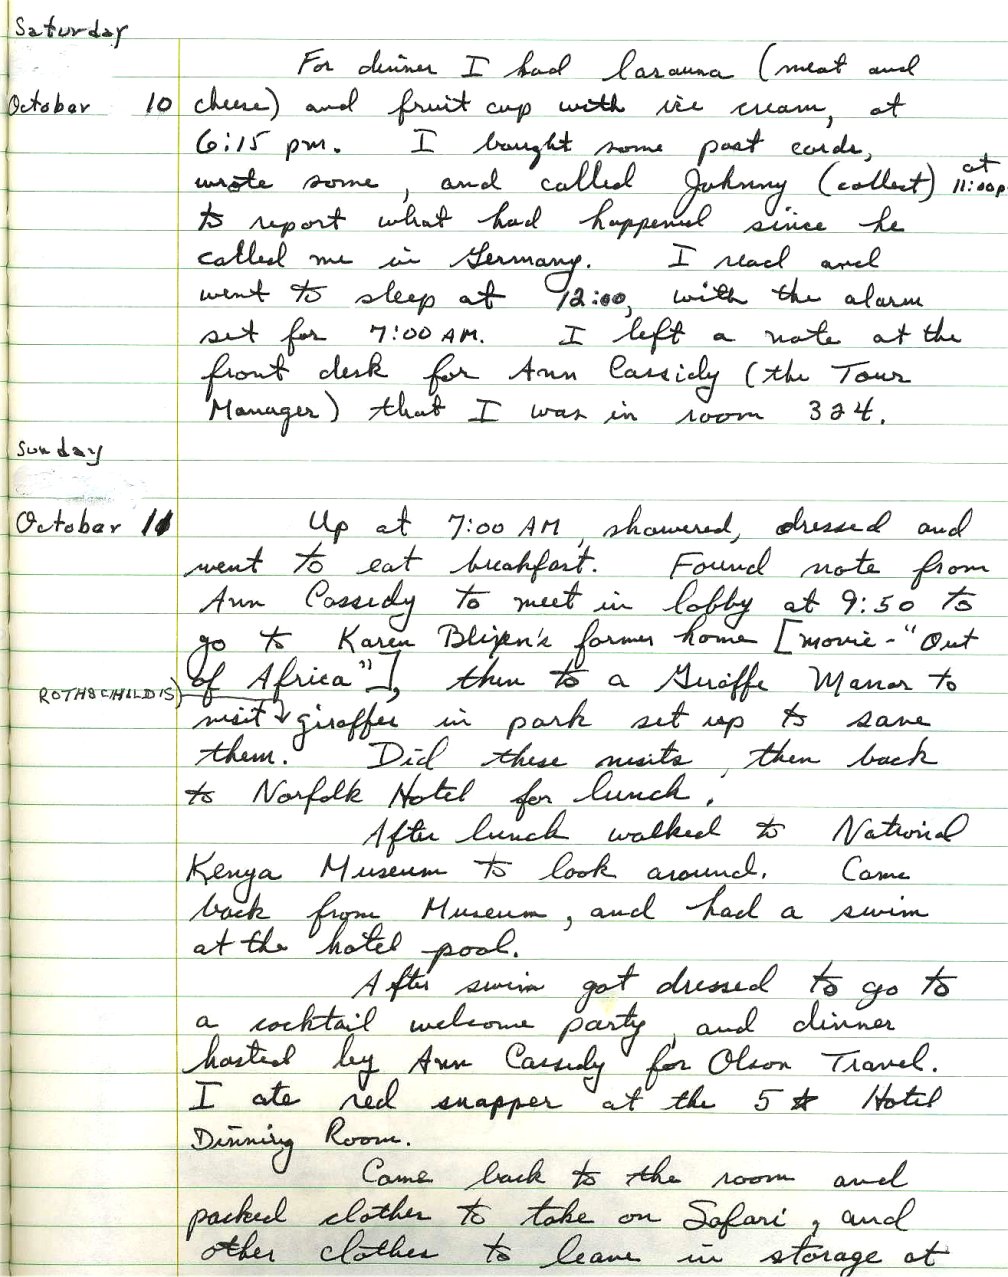 Saturday
For dinner I had lasauna (meat and
October 10 cheese) and fruit cup with ice cream, at
6:15 pm. I bought some post cards,
wrote some, and called Johnny (collect) at 11:00p
to report what had happened since he
called me in Germany. I read and
went to sleep at 12:00, with the alarm
set for 7:00 AM. I left a note at the
front desk for Ann Cassidy (the Tour
Manager) that I was in room 324.
Sunday
October 11 Up at 7:00 AM, showered, dressed and
went to eat breakfast. Found note from
Ann Cassidy to meet in lobby at 9:50 to
go to Karen Blixen's former home [movie - "Out
of Africa"], then to a Giraffe Manor to
ROTHSCHILD'S)
visit giraffes in park set up to save
them. Did these visits, then back
to Norfolk Hotel for lunch.
After lunch walked to National
Kenya Museum to look around. Came
back from Museum, and had a swim
at the hotel pool.
After swim got dressed to go to
a cocktail welcome party, and dinner
hosted by Ann Cassidy for Olson Travel.
I ate red snapper at the 5 ☆ Hotel
Dinning Room.
Came back to the room and
packed clothes to take on Safari, and
other clothes to leave in storage at